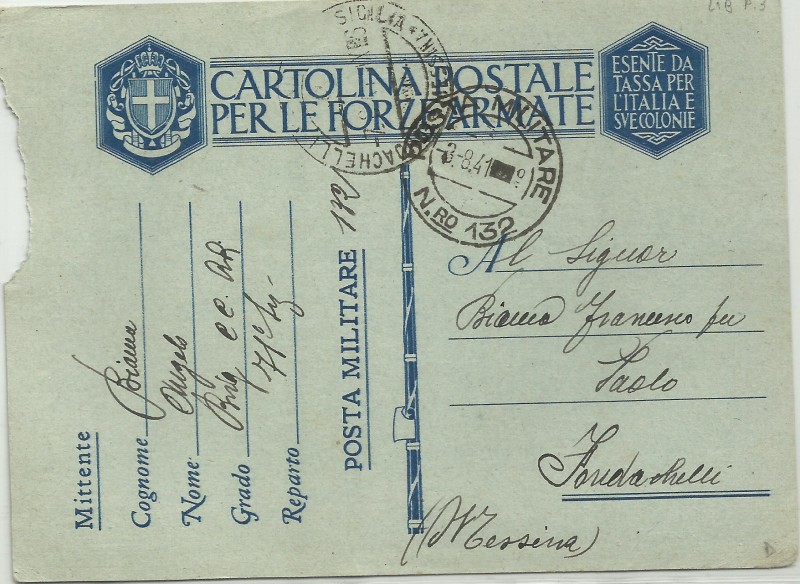 LIB P.3
CARTOLINA POSTALE
PER LE FORZE ARMATE
ESENTE DA
TASSA PER
L'ITALIA E
SVE COLONIE
SICILIA
POSTA MILITARE
3-8.41
N.RO 132
Mittente
Cognome Bianca
Nome Angelo
Grado Brig. C C.
Reparto 71ª
POSTA MILITARE 132
Al Signor
Bianca Francesco fu
Paolo
Fondachelli
(Messina)
D